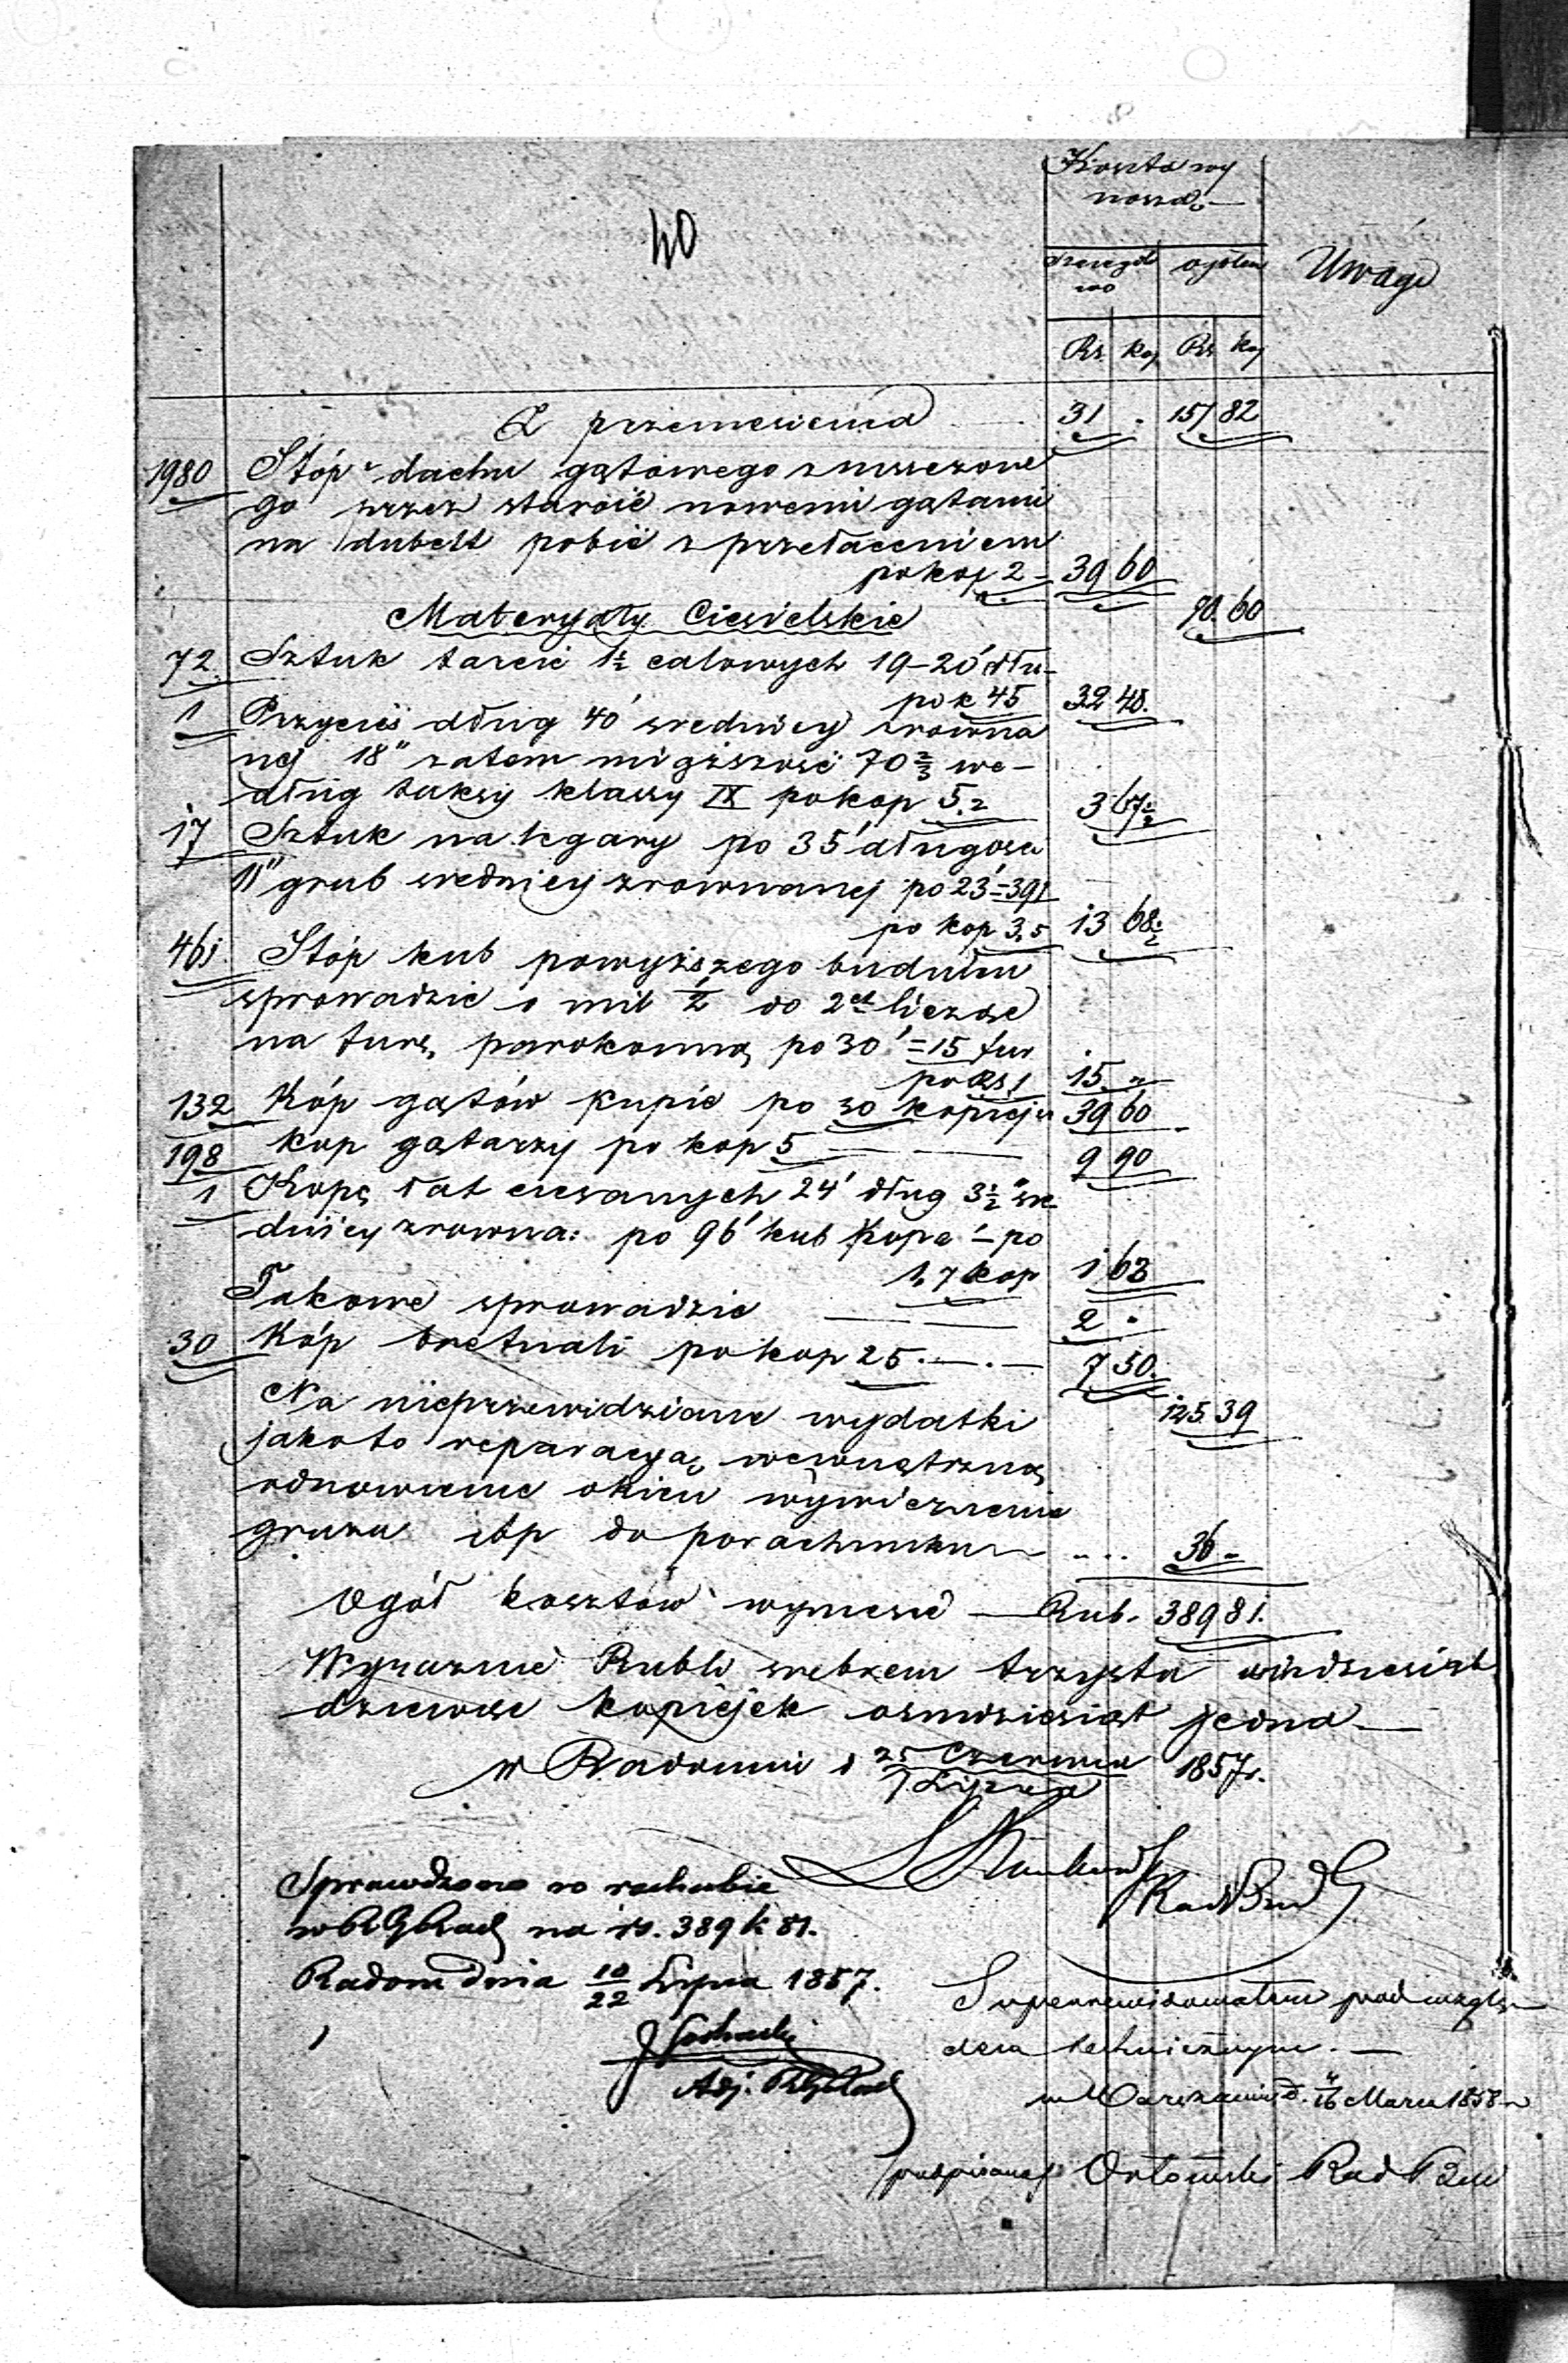 Koszta wy
noszą
40
szczegół
owo
ogółem
Uwagi
Rs. Kop Rs. Kop
Z przeniesienia 31 . 157 82
1980 Stóp dachu gątowego zniszczone
go przez starość nowemi gątami
na dubelt pobić z przełaceniem
po kop 2 – 39 60
Materyały Ciesielskie 70. 60
72. Sztuk tarcic 1½ calowych 19–20' dłu–
po k 45 32 40.
1 Przycieś dług 40' średnicy zrówna
nej 18" zatem miąższość 70 2/3 we–
dług taksy klassy IX po kop 5.2 3 67½
17 Sztuk na legary po 35' długości
11" grub średnicy zrównanej po 23' = 391
po kop 3.5 13 68½
461. Stóp kub powyższego budulcu
sprowadzić o mil ½ do 2ch licząc
na furę parokonną po 30' = 15 fur
po Rs 1 15 "
132 Kóp gątów kupić po 30 kopiejek 39 60
198 kop gątarzy po kop 5 — — 9 90
1 Kopę łat ciesanych 24' dług 3½" śre
dnicy zrówna: po 96' kub kopa – po
1,7 kop 1 63
Takowe sprowadzić — — 2 "
30 Kóp bretnali po kop 25. — . — 7 50.
125 39
Na nieprzewidziane wydatki
jakoto reparacyą wewnętrzną
odnowienie okien wywiezienie
gruzu itp do porachunku .... 36 –
Ogół kosztów wyniesie — Rub. 389 81.
Wyraźnie Rubli srebrem trzysta ośmdziesiąt
dziewięć kopiejek ośmdziesiąt jedna —
w Radomiu d 25 Czerwca / 7 Lipca 1857 r.
Rad Bud G
Sprawdzono w rachubie
w R. G. Rad na rs. 389 k 81.
Radom dnia 10/22 Lipca 1857.
Adj. R. G. Rad
Superrewidowałem pod wzglę–
dem technicznym. —
w Warszawie d. 4/16 Marca 1858 r
podpisany Orłowski Rad Bud